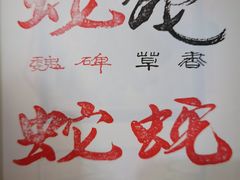 蛇 蛇
魏碑 草香
蛇 蛇